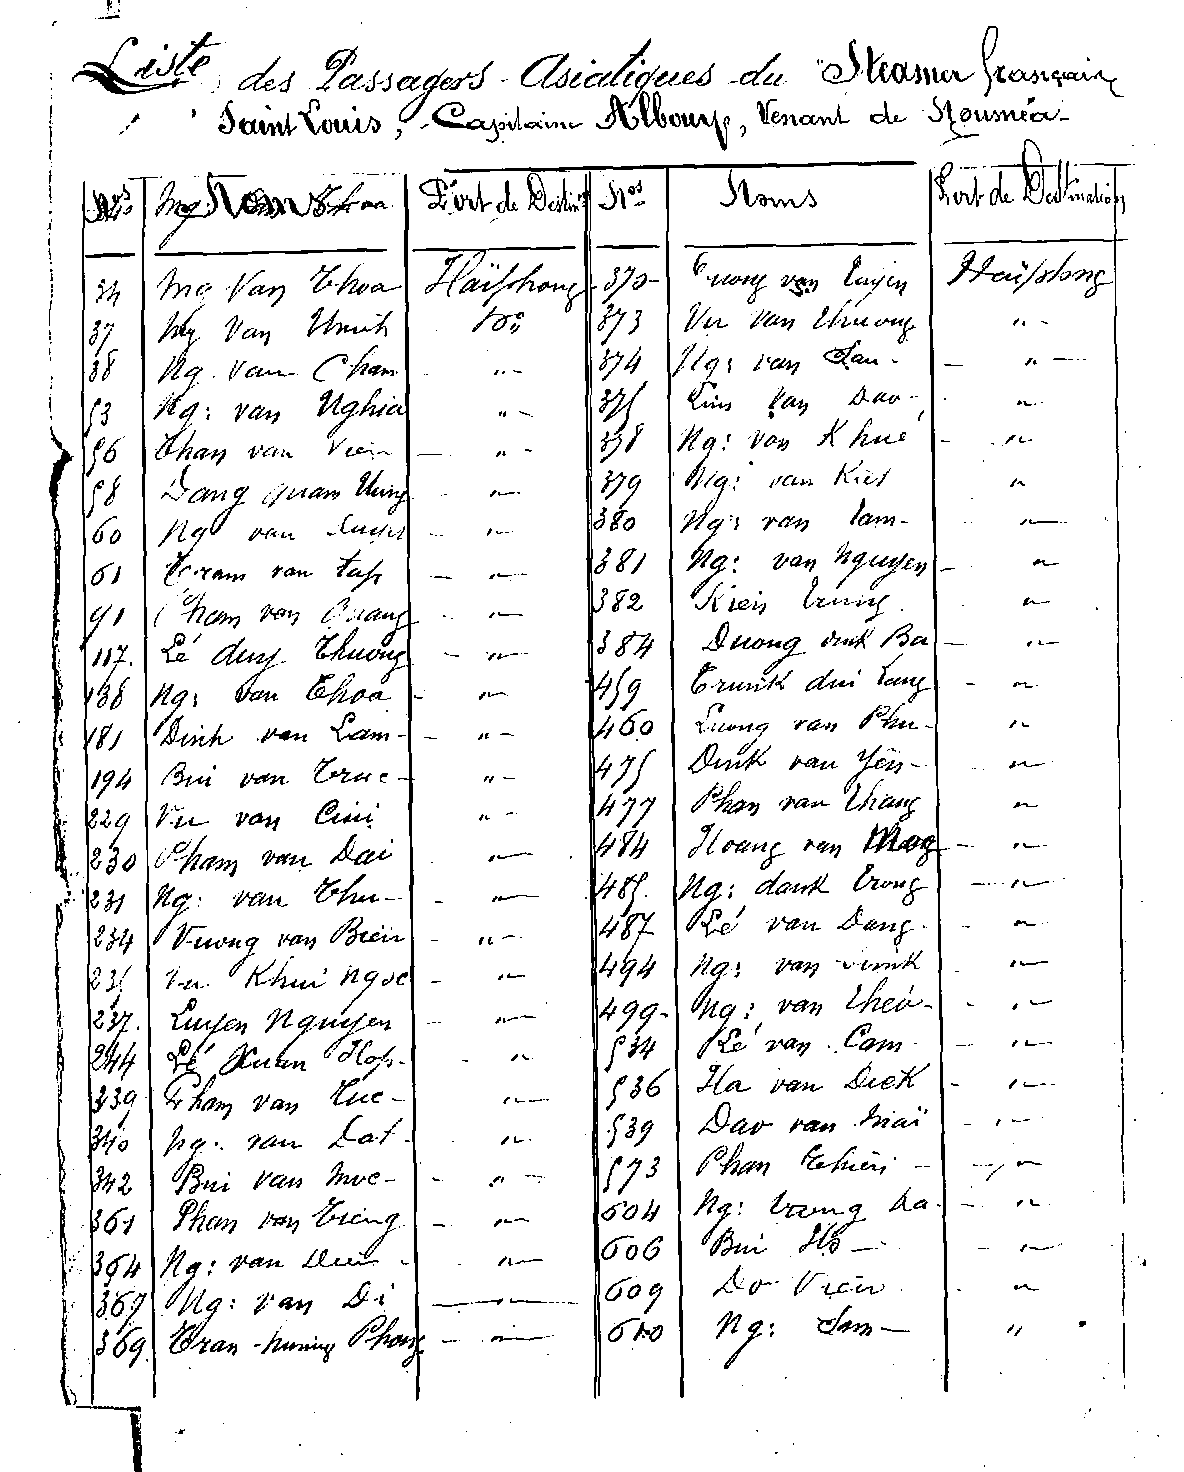 Liste des Passagers Asiatiques du Steamer français
Saint Louis, Capitaine Albouy, Venant de Nouméa
Nos Noms Port de Destin
34 Ng Van Thoa Haïphong
37 Ng Van Do
38 Ng. Van Cham "
53 Ng: van Nghia "
56 Than van Vien "
58 Dang quam "
60 Ng van "
61 Tram van Tap "
91 Cham van Quang "
117. Lé duy Thuong "
138 Ng: van Thoa "
181 Dinh van Lam "
194 Bui van Truc "
229 Vu van "
230 Pham van Dai "
231 Ng: van Thu "
234 Vuong van Bien "
235 Vu Khui Ngoc "
237. Luyen Nguyen "
244 Lé Xuan Hop "
339 Pham van Tuc "
340 Ng: van Dat "
342 Bui van Moc "
361 Phan van Tieng "
364 Ng: van Dien "
367 Ng: van Di "
369 Tran Phong "
Nos Noms Port de Destination
370 Truong van Luyen Haïphong
373 Vu van Thuong "
374 Ng: van Lau "
375 van Dao "
378 Ng: van Khué "
379 Ng: van Kiet "
380 Ng: van Tam "
381 Ng: van Nguyen "
382 Kien Trung "
384 Duong dink Ba "
459 Trunk dui Tang "
460 Luong van Phu "
475 Dink van Yên "
477 Phan van Thang "
484 Hoang van "
485. Ng: dank Trong "
487 Lé van Dang "
494 Ng: van "
499 Ng: van Theo "
534 Lé van Cam "
536 Ha van Dick "
539 Dao van "
573 Phan Thien "
604 Ng: "
606 Bui Ho "
609 Do Vien "
610 Ng: "